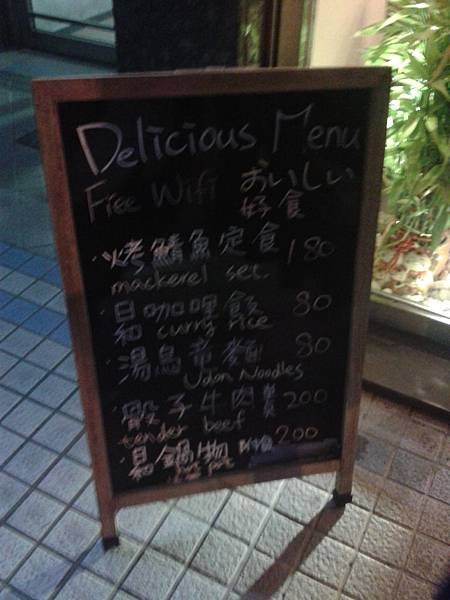 Delicious Menu
Free Wifi おいしい
好食
·烤鯖魚定食 180
mackerel set.
咖哩飯 80
curry rice
湯烏 80
Udon Noodles
·骰子牛肉 200
tender beef
鍋物 附食 200